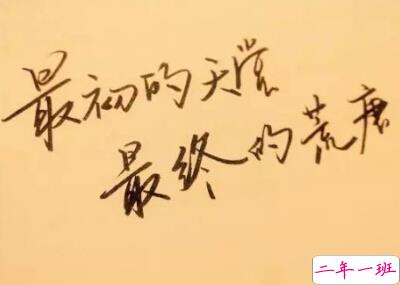 最初的天堂
最终的荒唐
二年一班